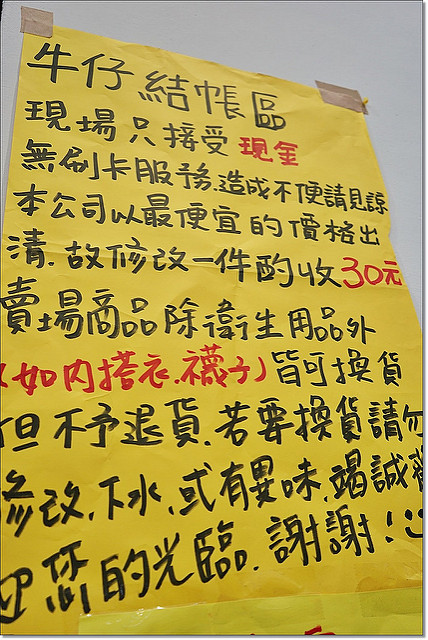 牛仔結帳區
現場只接受現金
無刷卡服務造成不便請見諒
本公司以最便宜的價格出
清.故修改一件酌收30元
賣場商品除衛生用品外
(如內搭衣.襪子)皆可換貨
但不予退貨.若要換貨請勿
修改.下水.或有異味.竭誠歡
迎您的光臨.謝謝!